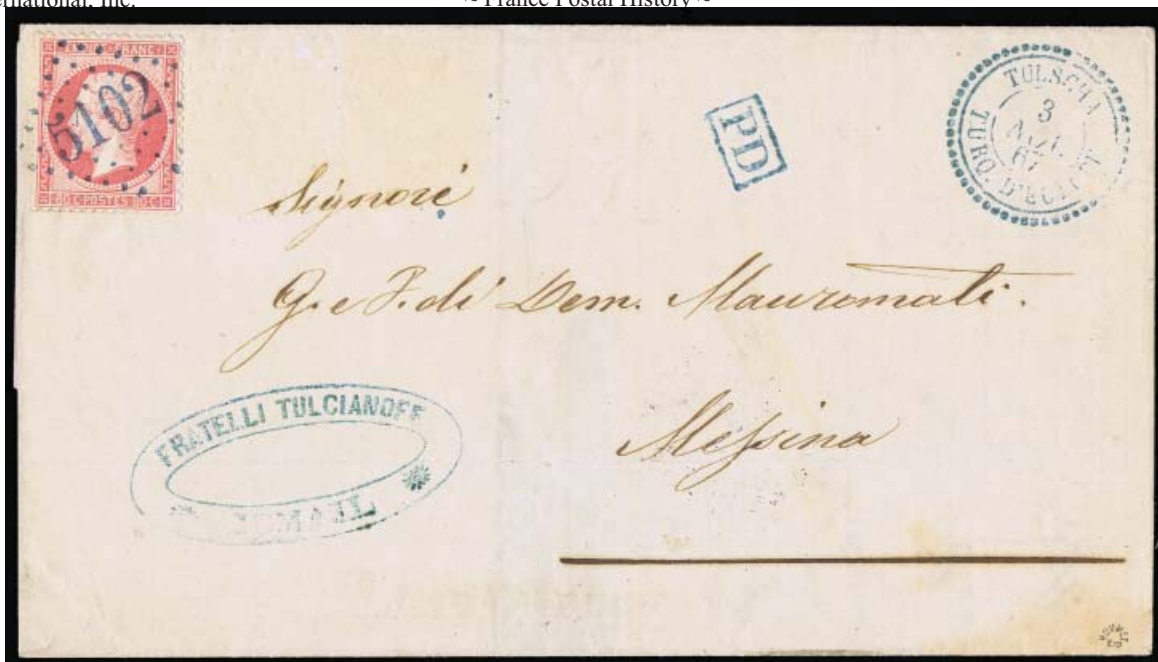 ernational, Inc.
~ France Postal History ~
EMPIRE FRANC
5102
80 C POSTES 80 C
PD
TULSCHA
3
67
TURQ. D'EUROPE
Signori
G. e F. di Dem. Mauromati.
Messina
FRATELLI TULCIANOFF
ISMAIL